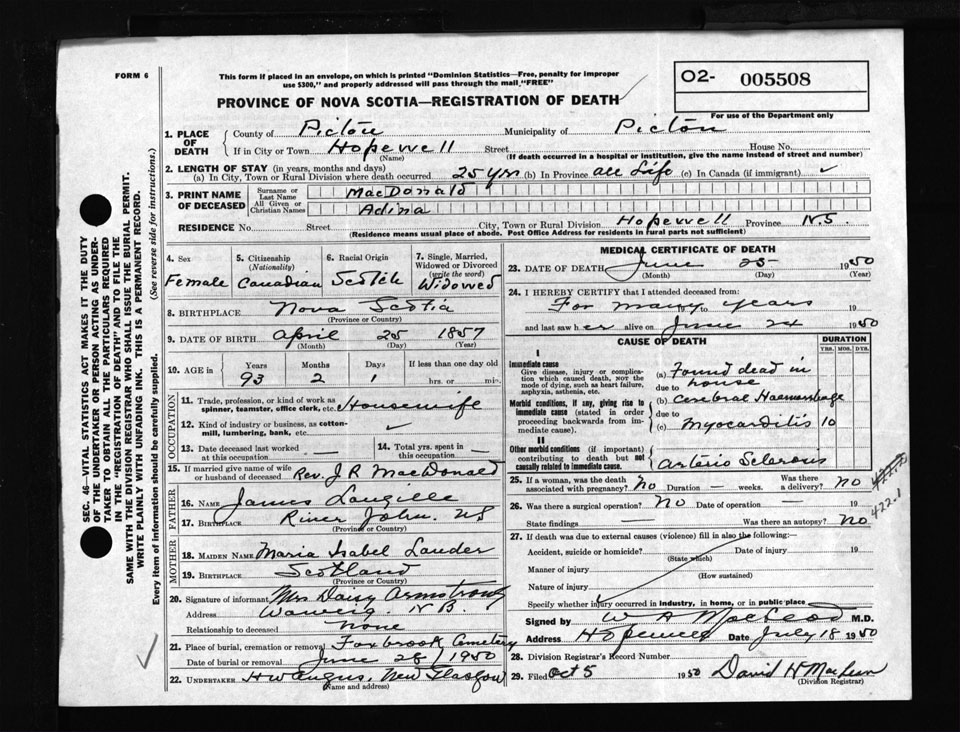 FORM 6
This form if placed in an envelope, on which is printed "Dominion Statistics—Free, penalty for improper
use $300," and properly addressed will pass through the mail "FREE"
O2- 005508
For use of the Department only
PROVINCE OF NOVA SCOTIA—REGISTRATION OF DEATH
1. PLACE OF DEATH
County of Pictou Municipality of Pictou
If in City or Town Hopewell Street House No.
(Name) (If death occurred in a hospital or institution, give the name instead of street and number)
2. LENGTH OF STAY (in years, months and days)
(a) In City, Town or Rural Division where death occurred 25 yrs (b) In Province all Life (c) In Canada (if immigrant)
3. PRINT NAME OF DECEASED
Surname or Last Name MacDonald
All Given or Christian Names Adina
RESIDENCE No. Street City, Town or Rural Division Hopewell Province N.S.
(Residence means usual place of abode. Post Office Address for residents in rural parts not sufficient)
4. Sex Female
5. Citizenship (Nationality) Canadian
6. Racial Origin Scotch
7. Single, Married, Widowed or Divorced (write the word) Widowed
8. BIRTHPLACE Nova Scotia
(Province or Country)
9. DATE OF BIRTH April 25 1857
(Month) (Day) (Year)
10. AGE in Years Months Days If less than one day old
93 2 1 hrs. or min.
OCCUPATION
11. Trade, profession, or kind of work as spinner, teamster, office clerk, etc. Housewife
12. Kind of industry or business, as cotton-mill, lumbering, bank, etc.
13. Date deceased last worked at this occupation —
14. Total yrs. spent in this occupation —
15. If married give name of wife or husband of deceased Rev. J.R. MacDonald
FATHER
16. NAME James Langille
17. BIRTHPLACE River John. NS
(Province or Country)
MOTHER
18. MAIDEN NAME Maria Isabel Lauder
19. BIRTHPLACE Scotland
(Province or Country)
20. Signature of informant Mrs Daisy Armstrong
Address Waweig. N B.
Relationship to deceased none
21. Place of burial, cremation or removal Foxbrook Cemetery
Date of burial or removal June 28/1950
22. UNDERTAKER H W Angus, New Glasgow
(Name and address)
MEDICAL CERTIFICATE OF DEATH
23. DATE OF DEATH June 25 1950
(Month) (Day) (Year)
24. I HEREBY CERTIFY that I attended deceased from:
For many years 19
and last saw her alive on June 24 1950
CAUSE OF DEATH
DURATION
YRS. MOS. DYS.
I
Immediate cause
Give disease, injury or complication which caused death, NOT the mode of dying, such as heart failure, asphyxia, asthenia, etc.
(a) Found dead in house
due to
Morbid conditions, if any, giving rise to immediate cause (stated in order proceeding backwards from immediate cause).
(b) Cerebral Haemorrhage
due to
(c) Myocarditis 10
II
Other morbid conditions (if important) contributing to death but not causally related to immediate cause.
Arterio Sclerosis
25. If a woman, was the death associated with pregnancy? No Duration — weeks. Was there a delivery? No
422.1
26. Was there a surgical operation? No Date of operation — 19
State findings — Was there an autopsy? No
27. If death was due to external causes (violence) fill in also the following:—
Accident, suicide or homicide? Date of injury 19
(State which)
Manner of injury
(How sustained)
Nature of injury
Specify whether injury occurred in industry, in home, or in public place
Signed by W A MacLeod M.D.
Address Hopewell Date July 18 1950
28. Division Registrar's Record Number
29. Filed Oct 5 1950 David H MacLean
(Division Registrar)
SEC. 46—VITAL STATISTICS ACT MAKES IT THE DUTY
OF THE UNDERTAKER OR PERSON ACTING AS UNDER-
TAKER TO OBTAIN ALL THE PARTICULARS REQUIRED
IN THE "REGISTRATION OF DEATH" AND TO FILE THE
SAME WITH THE DIVISION REGISTRAR WHO SHALL ISSUE THE BURIAL PERMIT.
WRITE PLAINLY WITH UNFADING INK. THIS IS A PERMANENT RECORD.
Every item of information should be carefully supplied. (See reverse side for instructions.)